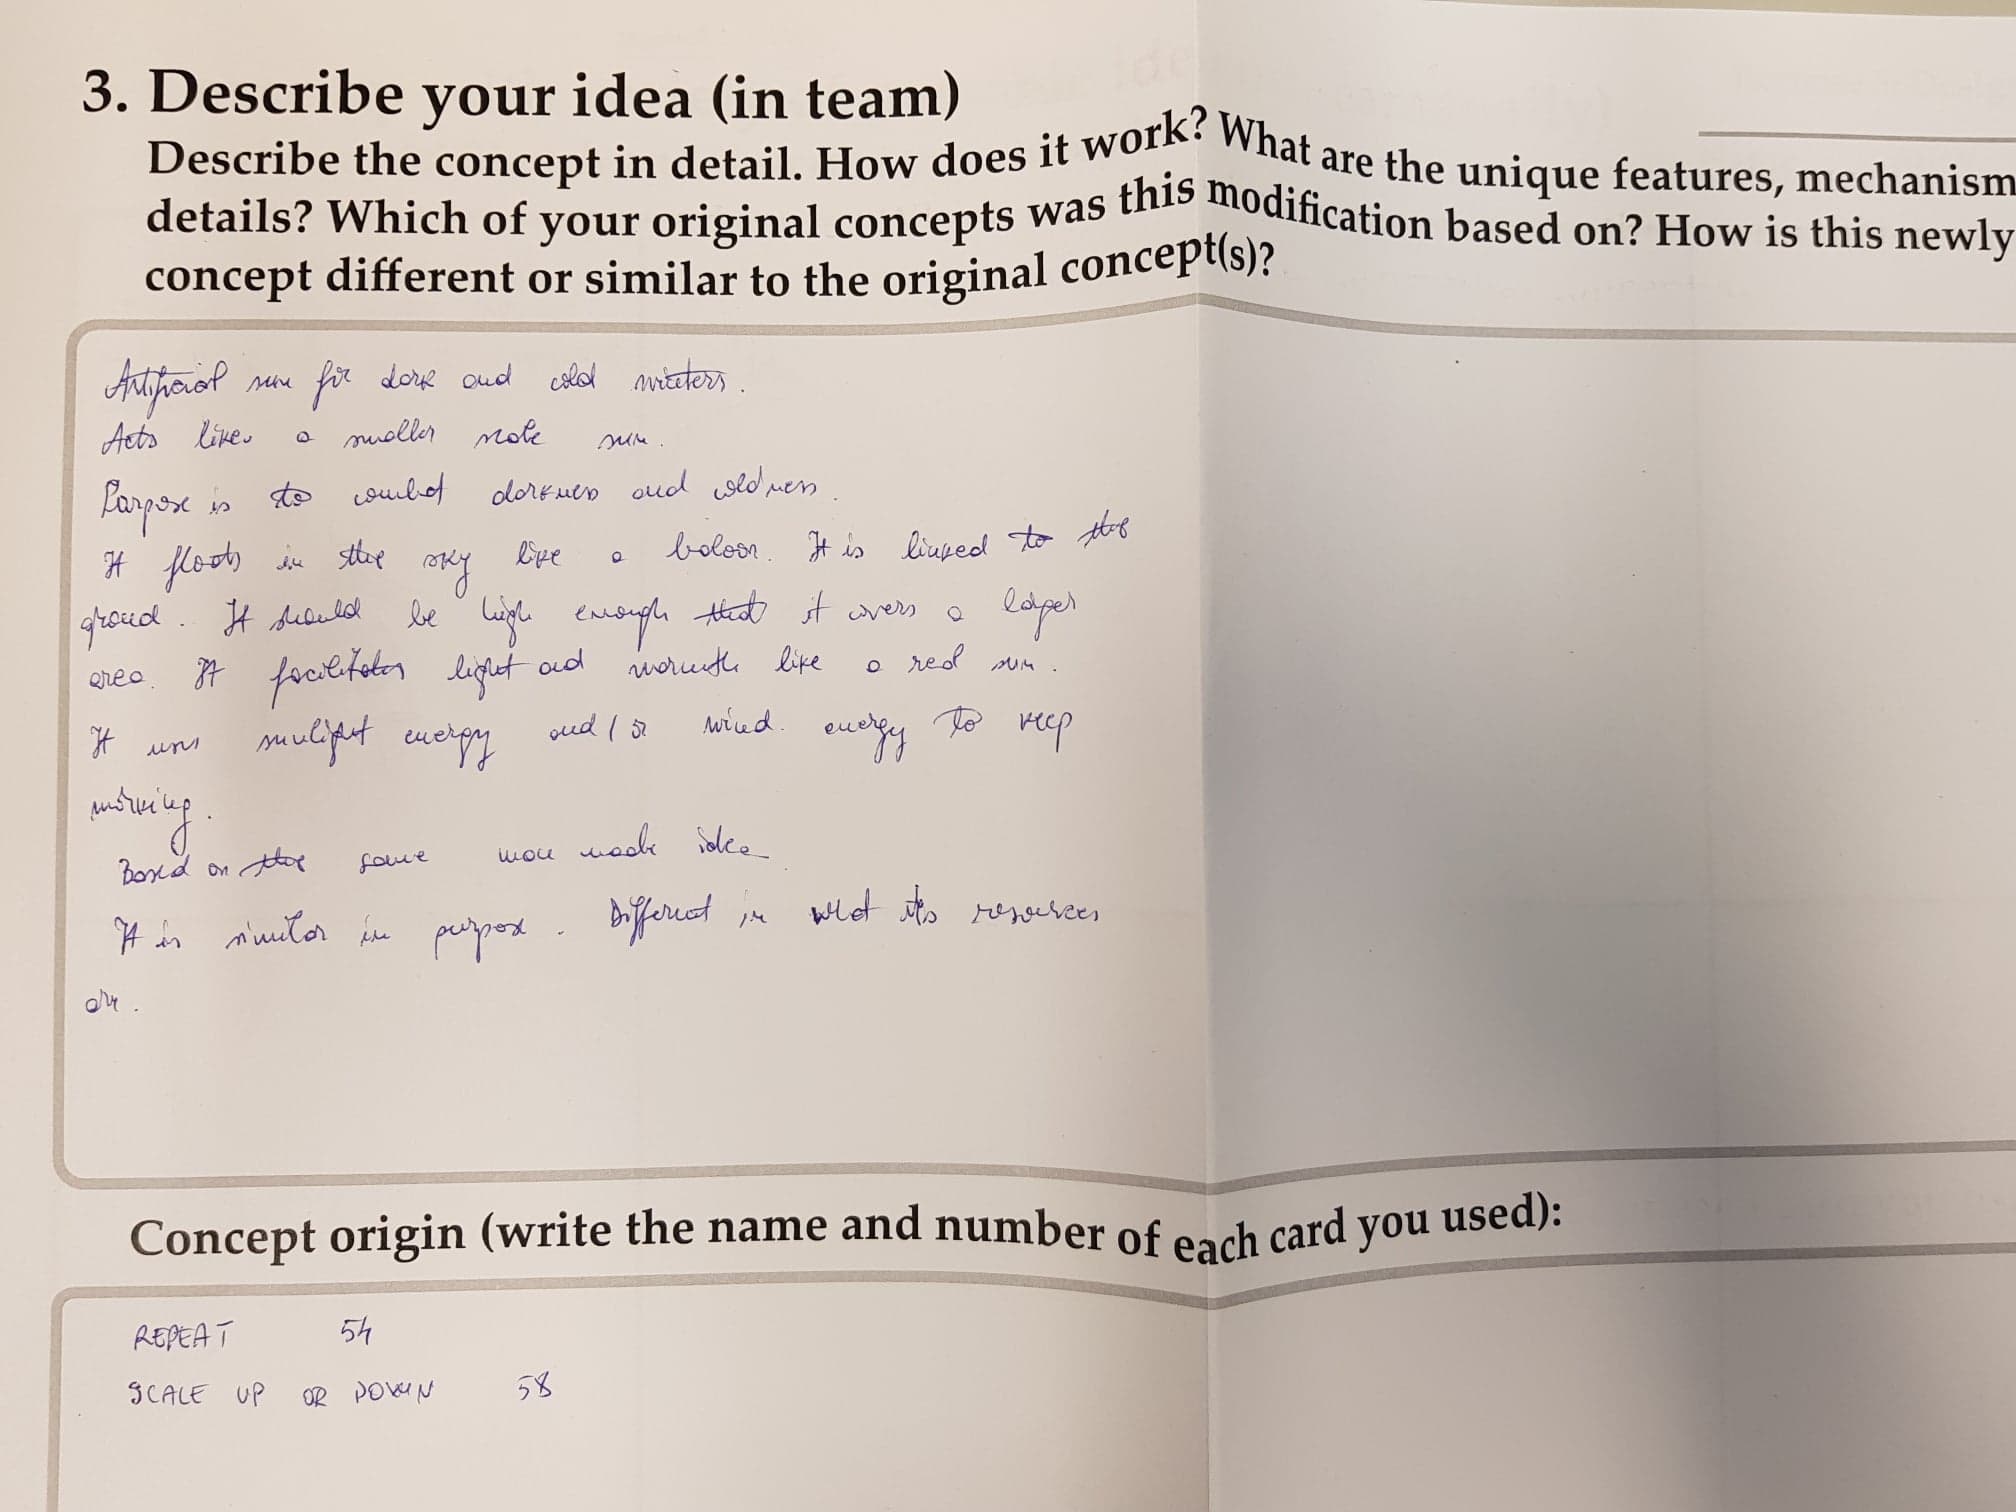 3. Describe your idea (in team)
Describe the concept in detail. How does it work? What are the unique features, mechanism
details? Which of your original concepts was this modification based on? How is this newly
concept different or similar to the original concept(s)?
Artificial sun for dark and cold winters.
Acts likes a smaller scale sun.
Parpose is to combat darkness and coldness.
It floats in the sky like a baloon. It is linked to the
groud. It should be high enough that it covers a larger
area. It facilitates light and warmth like a real sun.
It uses sunlight energy and / or wind energy to keep
working.
Based on the same idea
It is similar in purpose. Different in what its resources
are.
Concept origin (write the name and number of each card you used):
REPEAT 54
SCALE UP OR DOWN 58